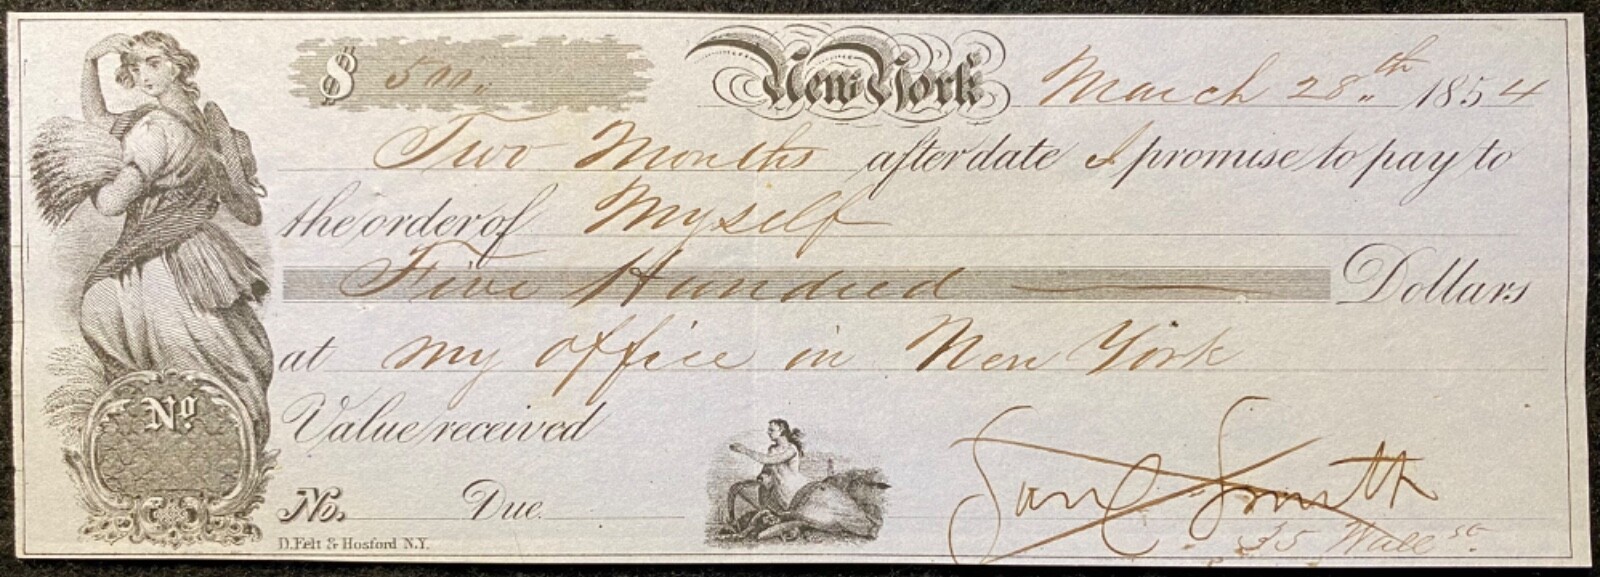 $ 500.. New York March 28th 1854
Two Months after date I promise to pay to
the order of Myself
Five Hundred Dollars
at my office in New York
Value received
No.
No. Due
Saml Smith
35 Wall st.
D. Felt & Hosford N.Y.